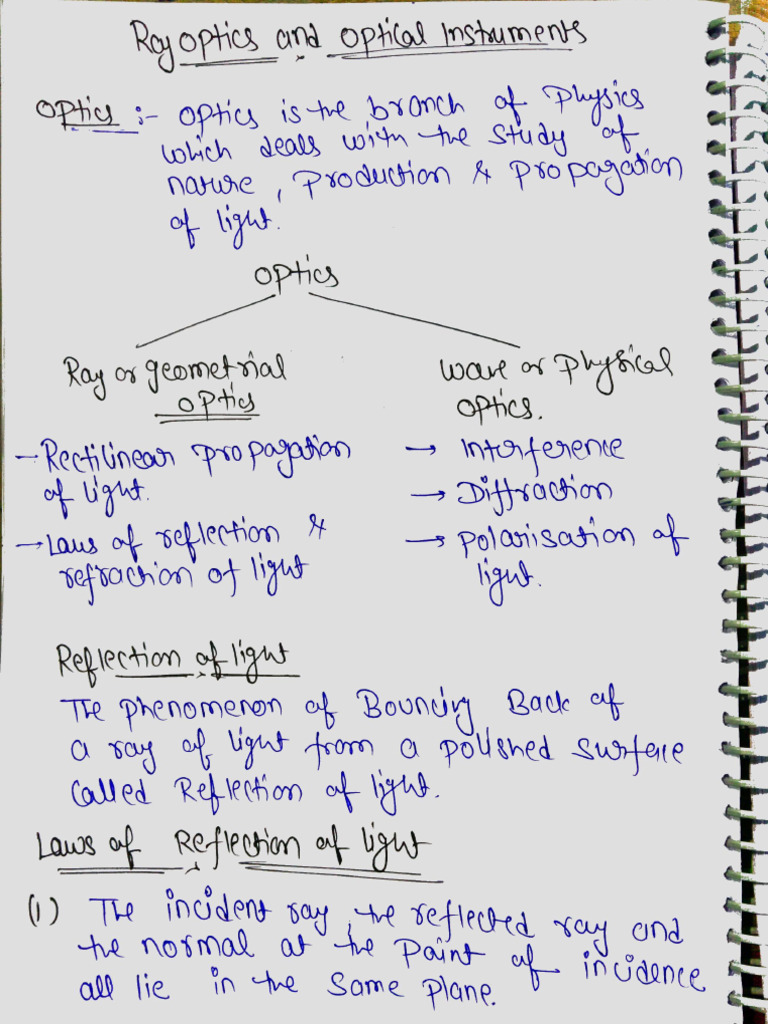 Ray optics and optical Instruments
Optics :- optics is the branch of Physics
which deals with the study of
nature, Production & Propagation
of light.
Optics
Ray or geometrial
optics
Wave or Physical
optics.
- Rectilinear Propagation
of light.
→ Laws of reflection &
refraction of light
→ Interference
→ Diffraction
→ Polarisation of
light.
Reflection of light
The Phenomenon of Bouncing Back of
a ray of light from a polished surface
Called Reflection of light.
Laws of Reflection of light
(1) The incident ray, the reflected ray and
the normal at the Point of incidence
all lie in the Same Plane.